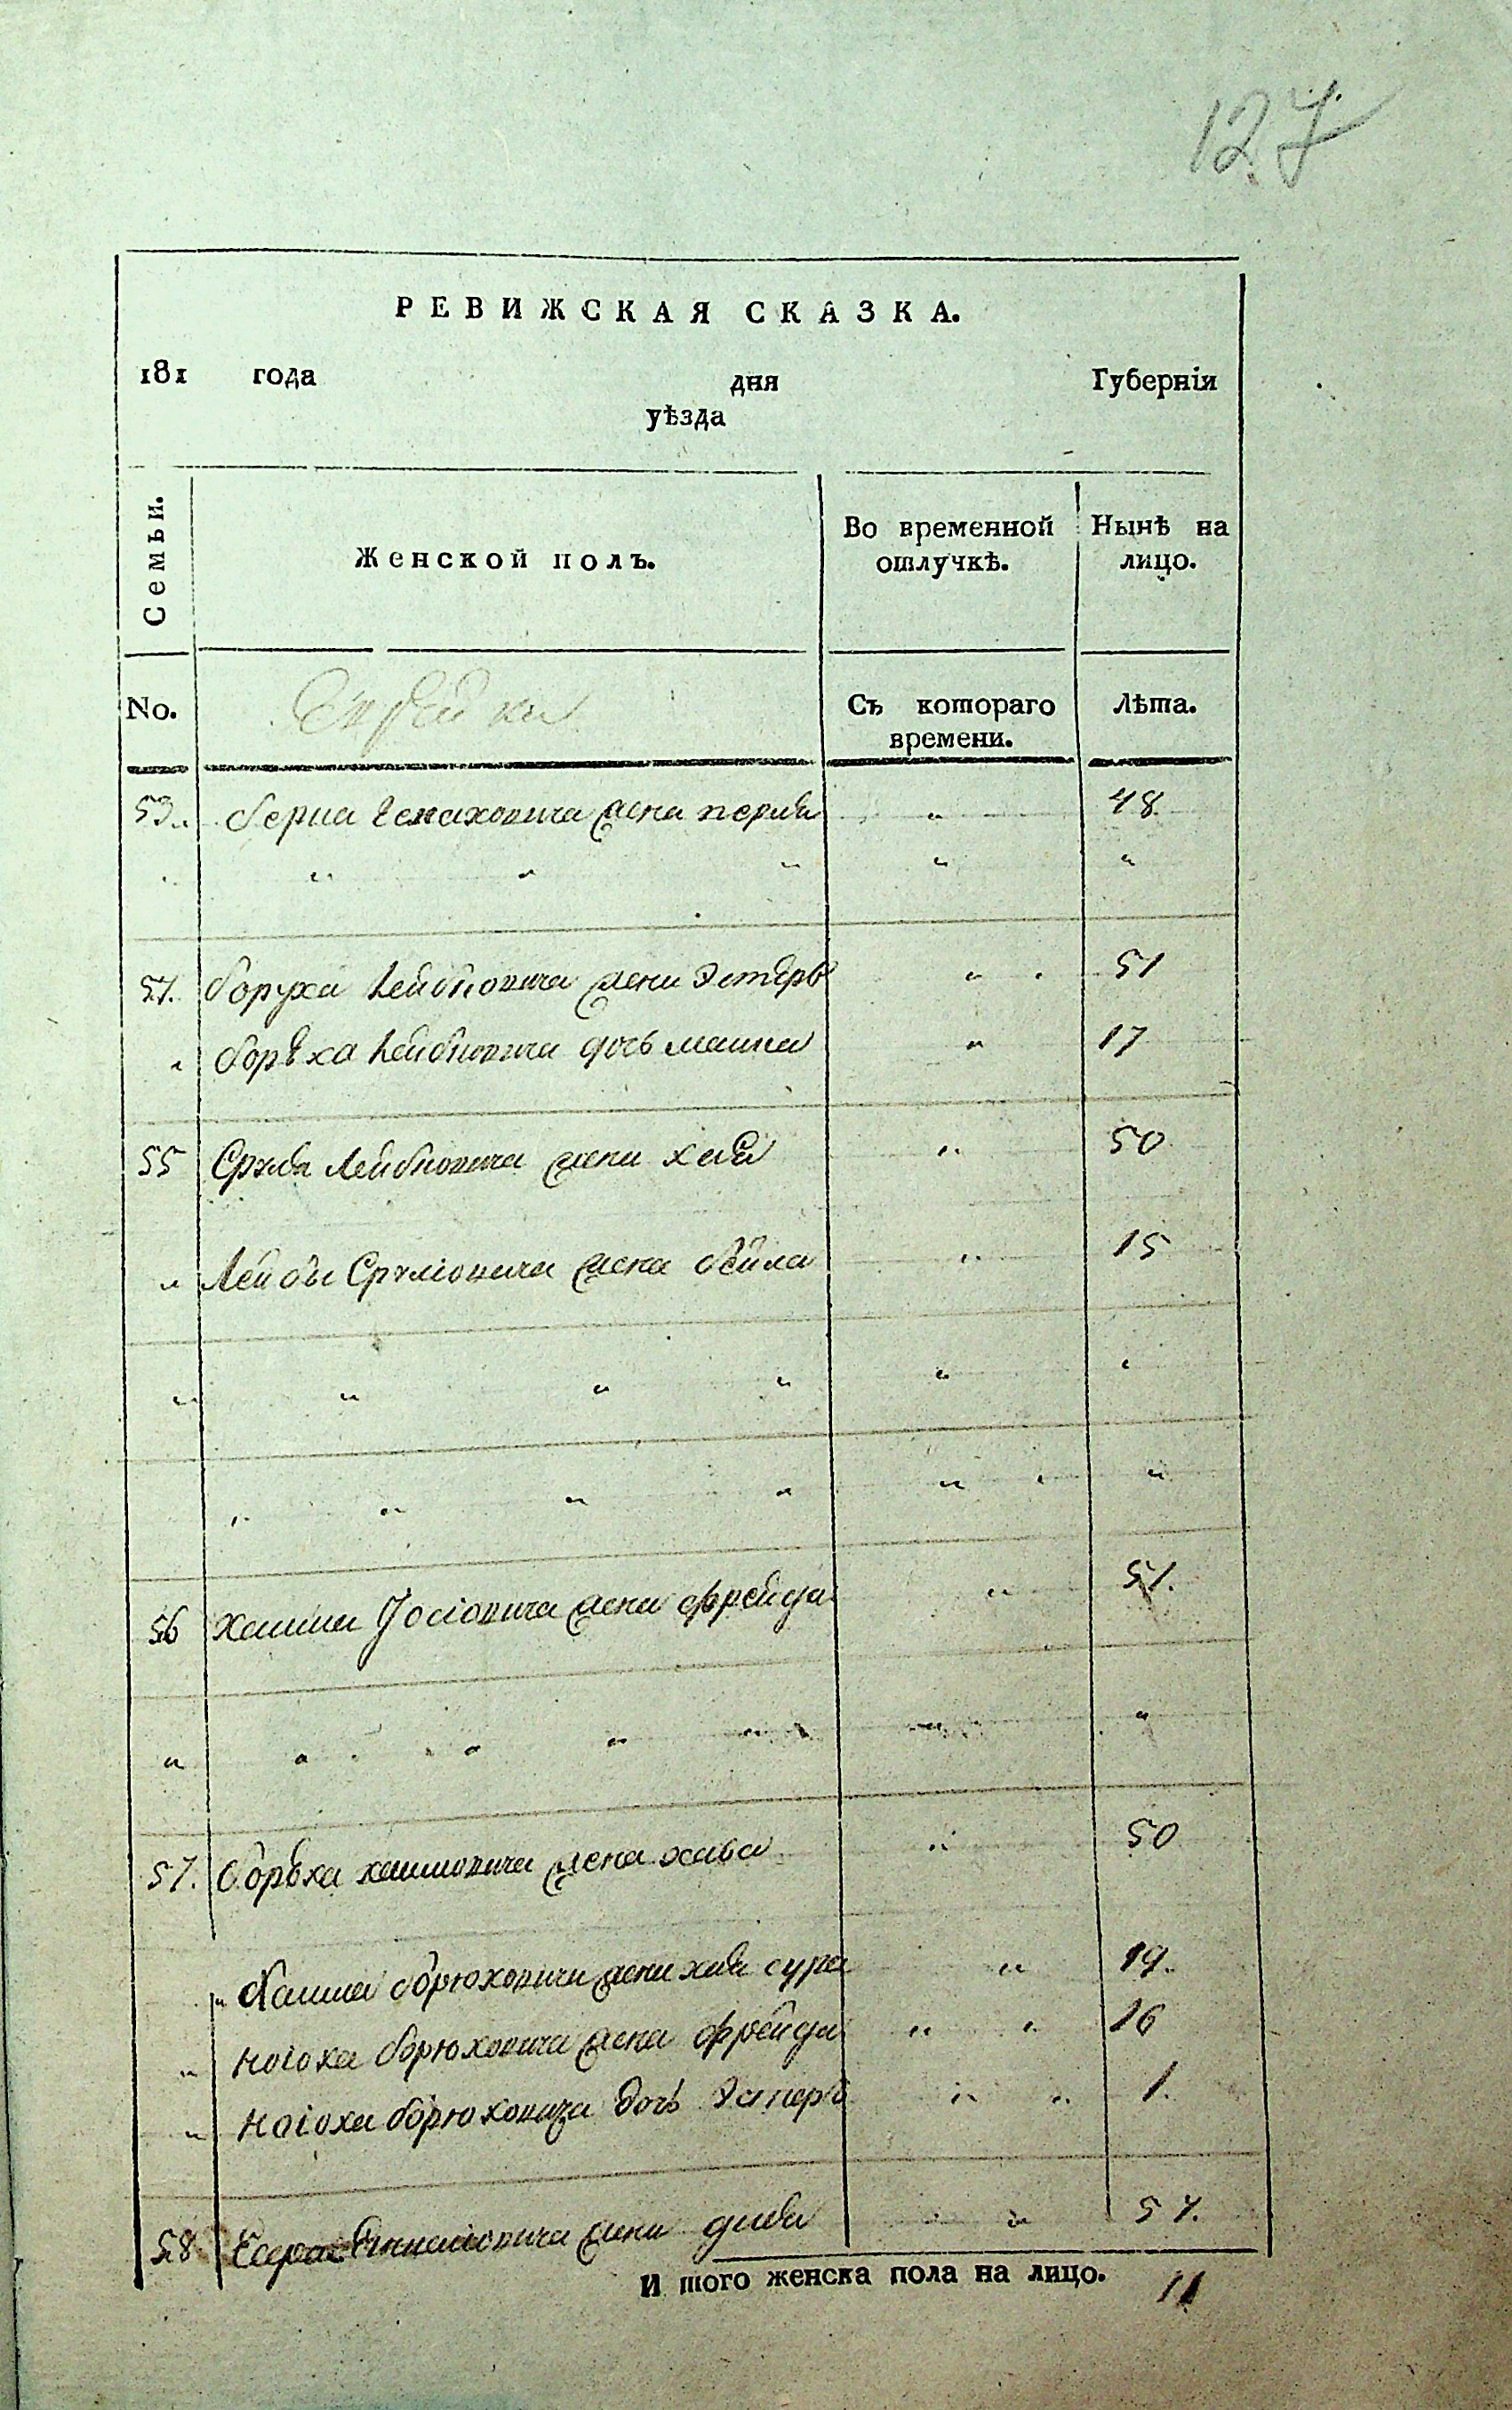 127
РЕВИЖСКАЯ СКАЗКА.
181 года дня Губерніи
уѣзда
Семьи. Женской полъ. Во временной отлучкѣ. Нынѣ на лицо.
No. Еврейки Съ котораго времени. Лѣта.
53. жена перля " 48
" " " " "
54. боруха лейбовича жена Эстеръ " 51
" боруха лейбовича дочь маня " 17
55 Сруля Лейбовича жена хая " 50
" Лейбы Сруліовича жена бейла " 15
" " " " " "
" " " " " "
56 хаима Іосіовича жена фрейда " 51.
" " " " " " "
57. борюха хаимовича жена хава " 50
" хаима борюховича жена хая сура " 19.
" борюховича жена фрейда " " 16
" борюховича дочь Эстеръ " " 1.
58 жена " 54.
И того женска пола на лицо. 11